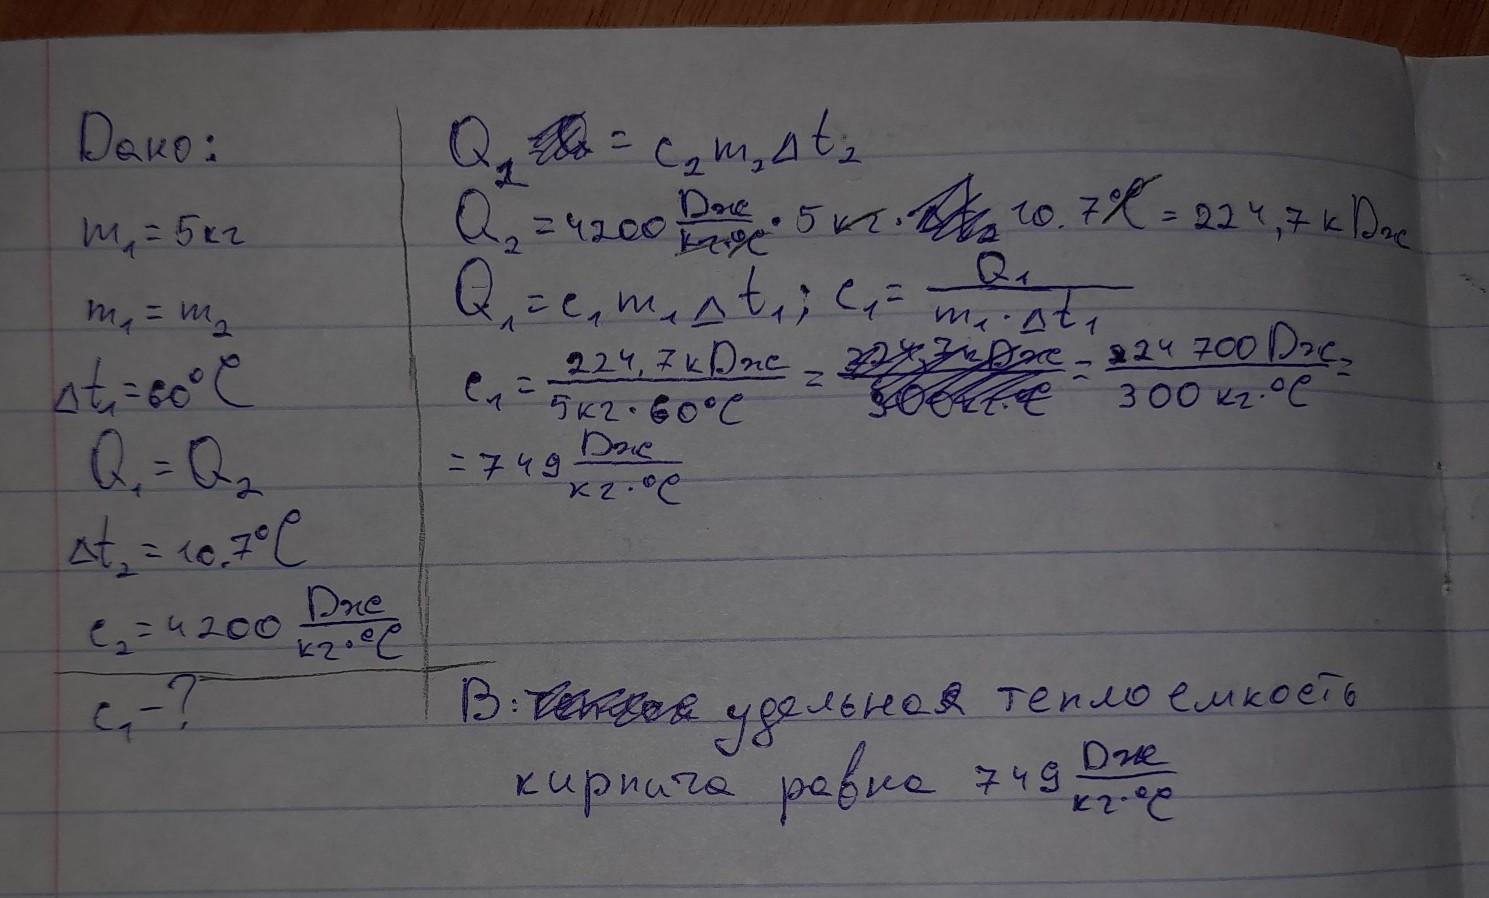 Дано:
m₁ = 5кг
m₁ = m₂
Δt₁ = 60°C
Q₁ = Q₂
Δt₂ = 10.7°C
c₂ = 4200 Дж/кг·°C
c₁ - ?
Q₂ = c₂ m₂ Δt₂
Q₂ = 4200 Дж/кг·°C · 5 кг · 10.7°C = 224,7 кДж
Q₁ = c₁ m₁ Δt₁; c₁ = Q₁/m₁·Δt₁
c₁ = 224,7 кДж/5кг·60°C = 224,7 кДж/300кг·°C = 224 700 Дж/300 кг·°C =
= 749 Дж/кг·°C
В: удельная теплоемкость
кирпича равна 749 Дж/кг·°C